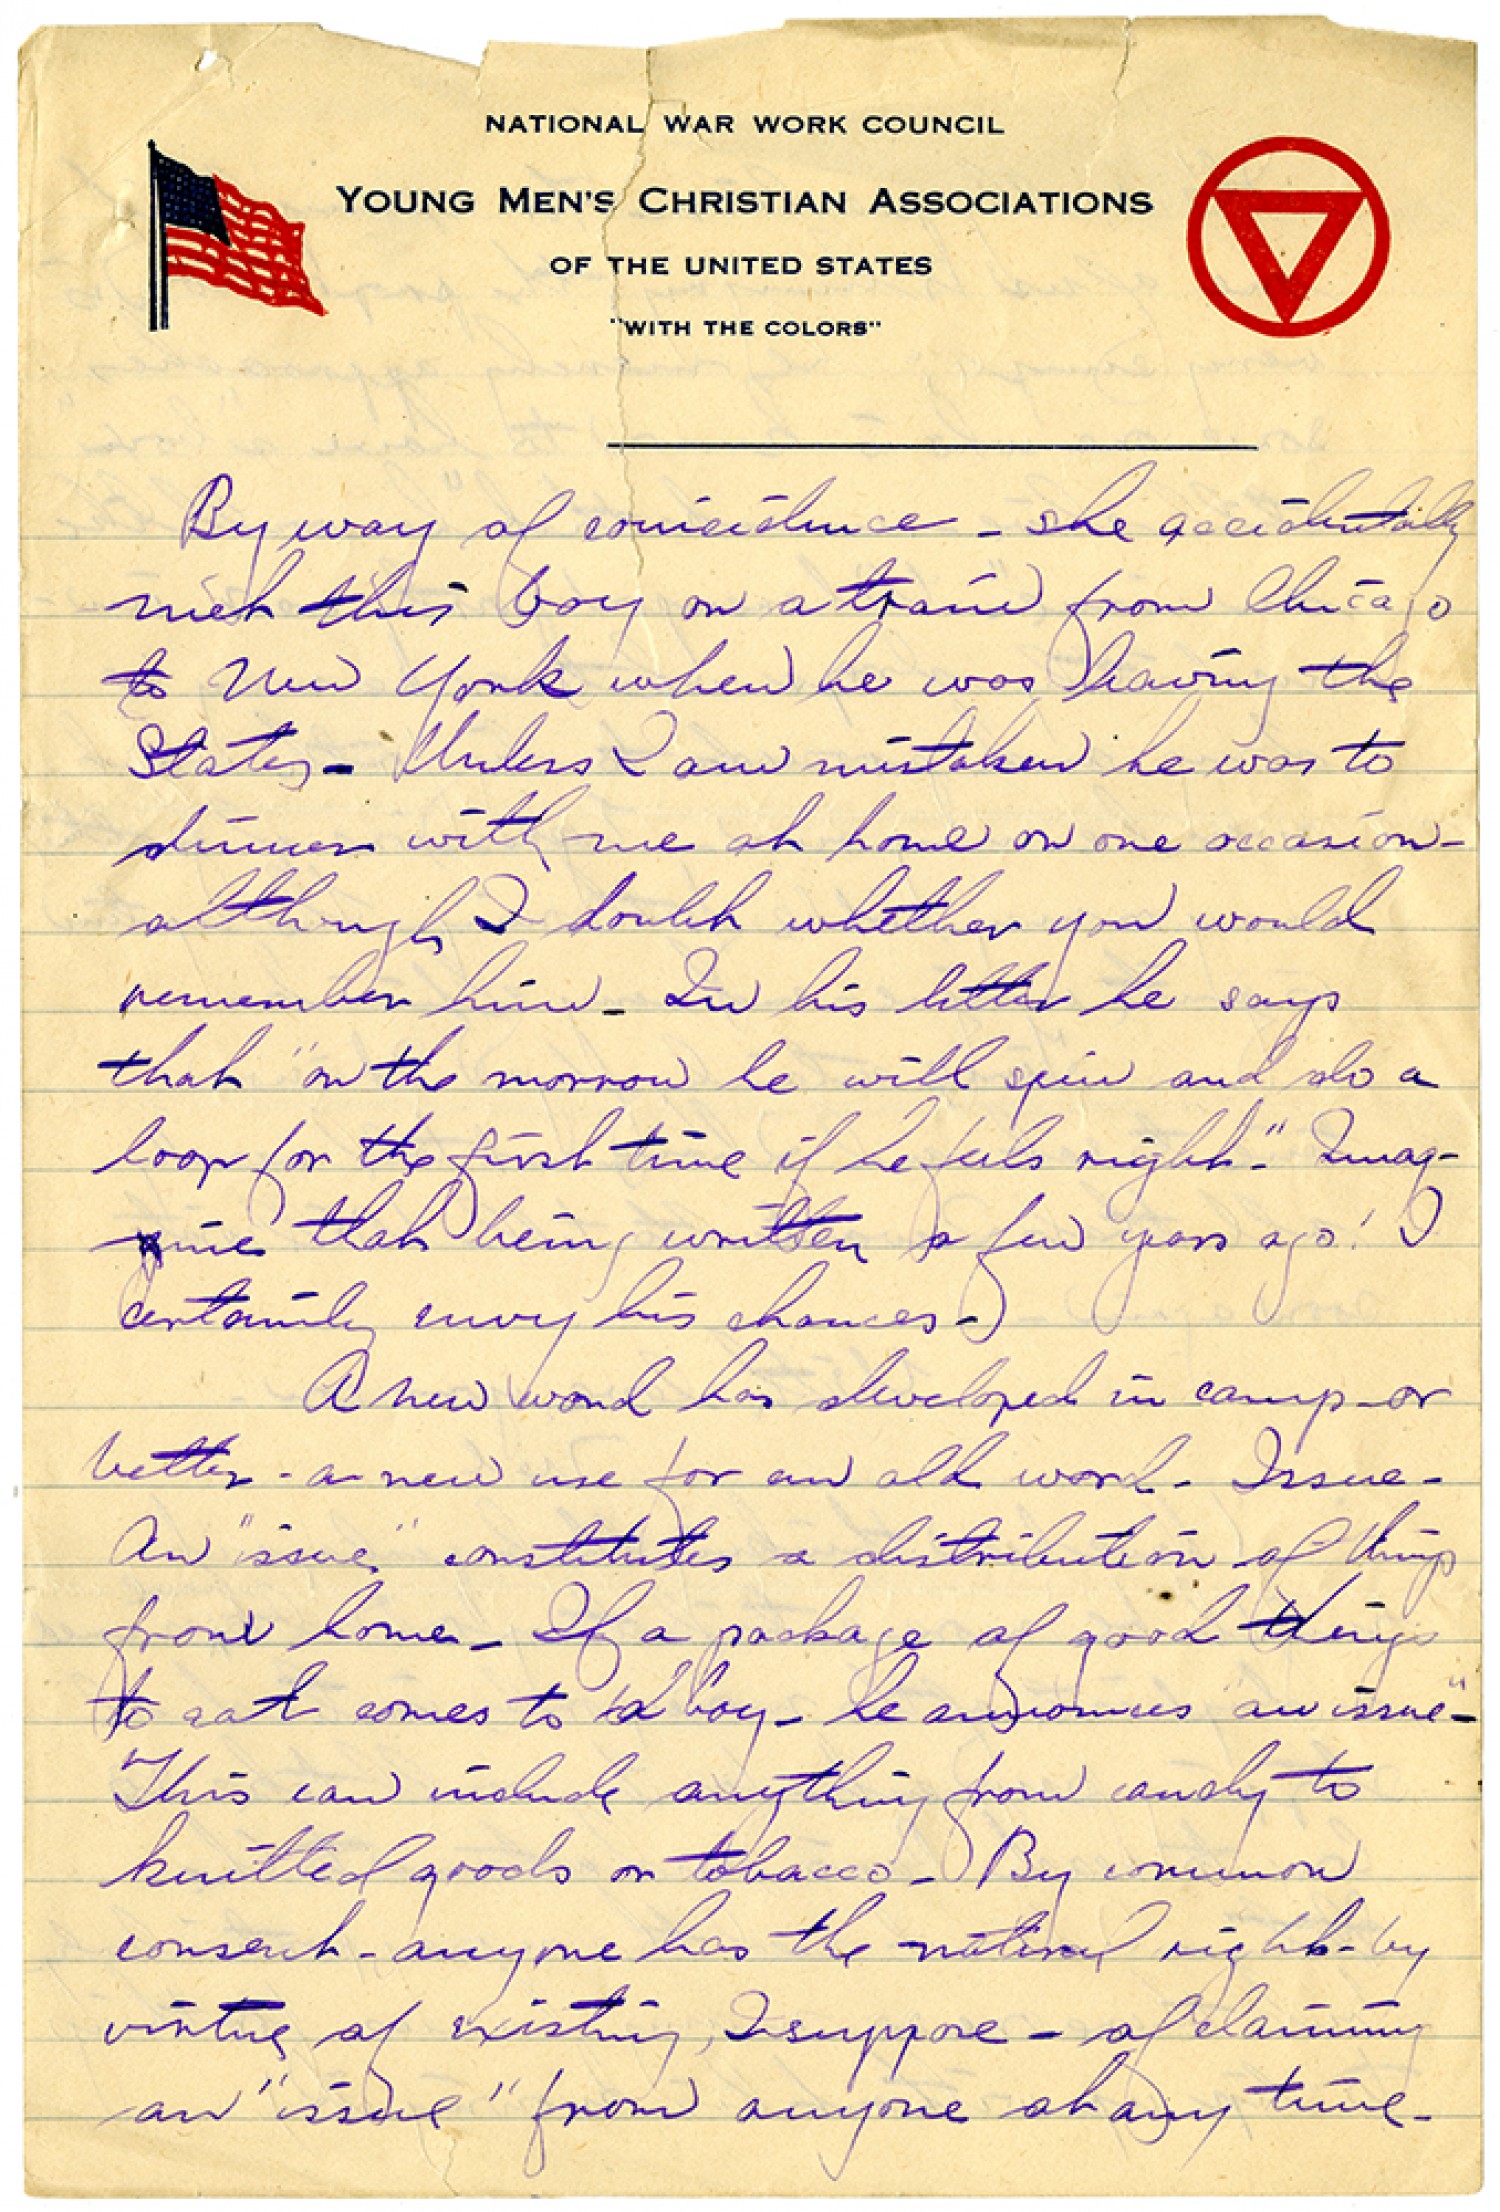 NATIONAL WAR WORK COUNCIL
YOUNG MEN'S CHRISTIAN ASSOCIATIONS
OF THE UNITED STATES
"WITH THE COLORS"
By way of coincidence - she accidentally
met this boy on a train from Chicago
to New York when he was leaving the
States - Unless I am mistaken he was to
dinner with me at home on one occasion -
although I doubt whether you would
remember him - In his letter he says
that "on the morrow he will spin and do a
loop for the first time if he feels right." Imag-
ine that being written a few years ago! I
certainly envy his chances -
A new word has developed in camp - or
better - a new use for an old word - Issue -
An "issue" constitutes a distribution of things
from home - If a package of good things
to eat comes to a boy - he announces "an issue" -
This can include anything from candy to
knitted goods or tobacco - By common
consent - anyone has the natural right - by
virtue of existing, I suppose - of claiming
an "issue" from anyone at any time -